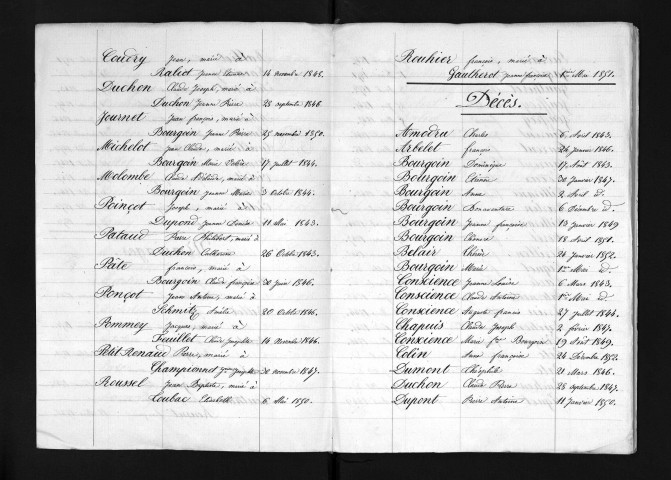 Coudry Jean, marié à
Raliot Jeanne 14 novembre 1848.
Duchon Claude Joseph, marié à
Duchon Jeanne Pierre 28 septembre 1846
Journet Jean françois, marié à
Bourgoin Jeanne Pierre 25 novembre 1850.
Michelot Jean Claude, marié à
Bourgoin Marie 17 juillet 1844.
Molombe Claude marié à
Bourgoin Jeanne Marie 3 Octobre 1844.
Poinçot Joseph, marié à
Dupond Jeanne Louise 11 Mai 1843.
Pataud Pierre Philibert, marié à
Duchon Catherine 26 Octobre 1843.
Pâte françois, marié à
Bourgoin Claude françoise 30 Juin 1846.
Ponçot Jean Antoine, marié à
Schmitz Amélie 20 Octobre 1846.
Pommey Jacques, marié à
Feuillet Claude Josephte 14 Novembre 1846.
Petit Renaud Pierre, marié à
Championnet Josephte 30 novembre 1847.
Roussel Jean Baptiste, marié à
Loubac Elisabeth 6 Mai 1850.
Rouhier françois, marié à
Gaultherot Jeanne françoise 1er Mai 1851.
Décès.
Amodru Charles 6 Avril 1843.
Arbelet françois 24 Janvier 1846.
Bourgoin Dominique 17 Août 1863.
Bourgoin Etienne 30 Janvier 1847.
Bourgoin Anne 2 Avril d°.
Bourgoin Bonaventure 6 Décembre d°.
Bourgoin Jeanne françoise 13 Janvier 1849
Bourgoin 18 Avril 1851.
Belair 24 Janvier 1852.
Bourgoin Marie 1er Mai d°.
Conscience Jeanne Louise 6 Mars 1843.
Conscience Claude Antoine 1er Mai d°.
Conscience Auguste francis 27 Juillet 1844.
Chapuis Claude Joseph 2 février 1847.
Conscience Marie fme Bourgoin 19 Août 1849.
Colin Anne françoise 24 Décembre 1852.
Dumont Théophile 21 Mars 1846.
Duchon Claude Pierre 28 septembre 1847.
Dupont Pierre Antoine 11 Janvier 1850.